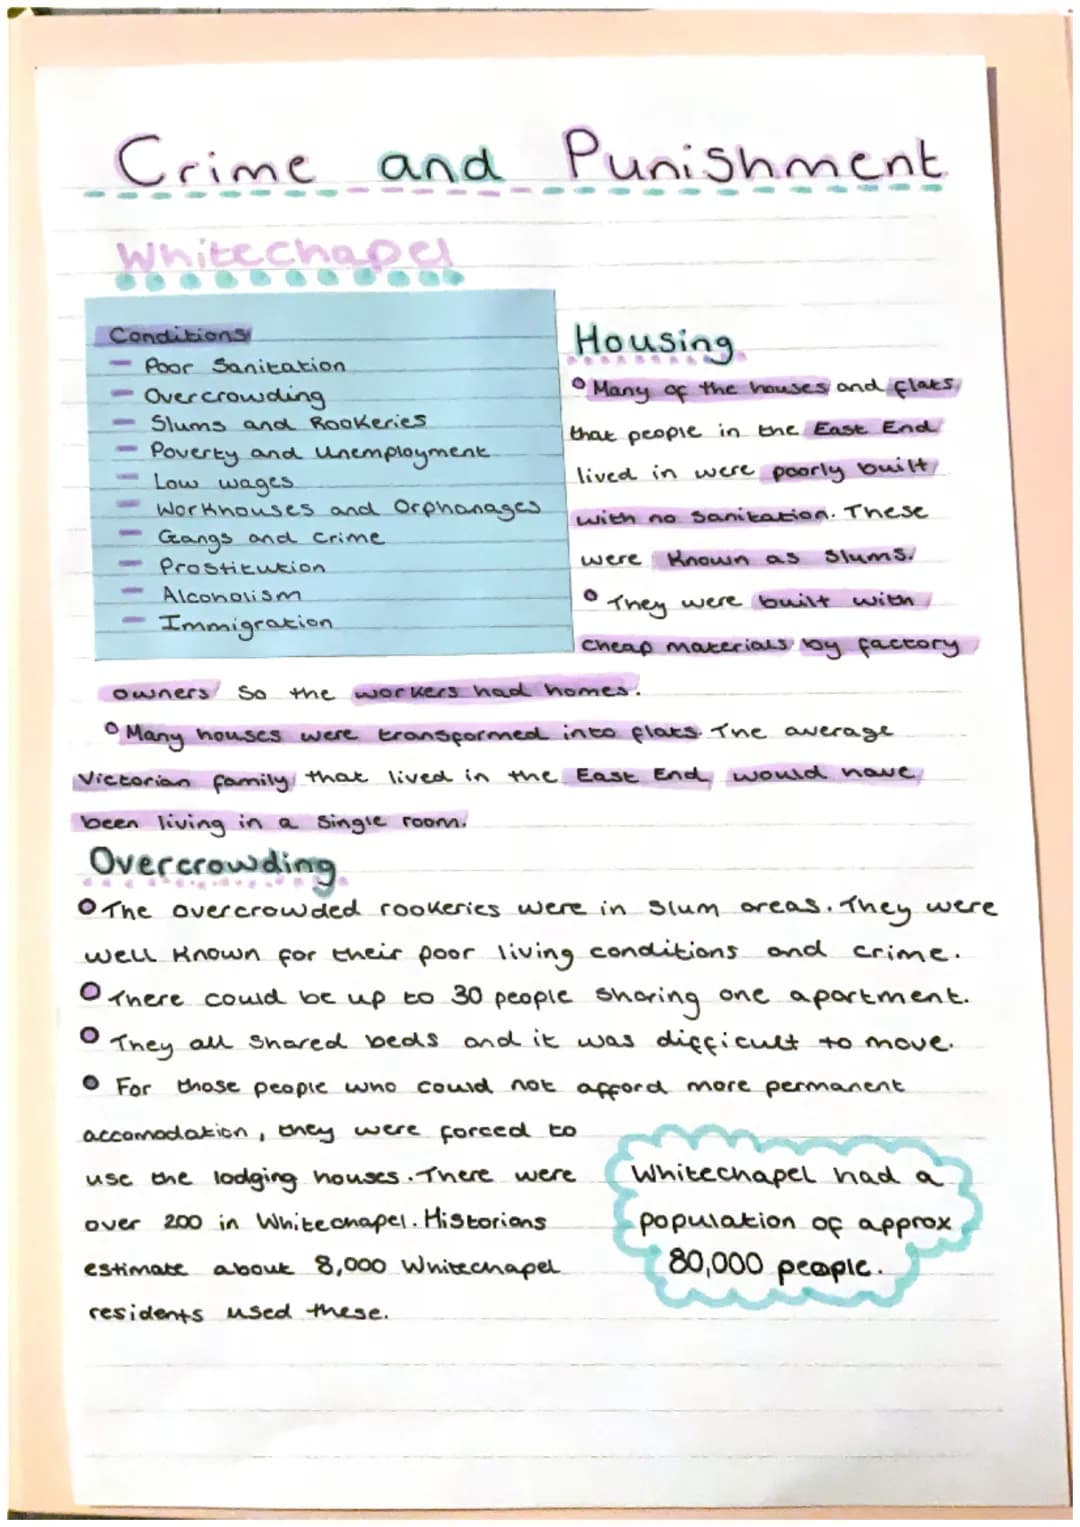 Crime and Punishment
Whitechapel
Conditions
- Poor Sanitation
- Overcrowding
- Slums and Rookeries
- Poverty and Unemployment
- Low wages
- Workhouses and Orphanages
- Gangs and Crime
- Prostitution
- Alcoholism
- Immigration
Housing
Many of the houses and flats
that people in the East End
lived in were poorly built
with no sanitation. These
were known as slums.
They were built with
cheap materials by factory
owners so the workers had homes.
Many houses were transformed into flats. The average
Victorian family that lived in the East End would have
been living in a single room.
Overcrowding
The overcrowded rookeries were in slum areas. They were
well known for their poor living conditions and crime.
There could be up to 30 people sharing one apartment.
They all shared beds and it was difficult to move.
For those people who could not afford more permanent
accomodation, they were forced to
use the lodging houses. There were
over 200 in Whitechapel. Historians
estimate about 8,000 Whitechapel
residents used these.
Whitechapel had a
population of approx
80,000 people.